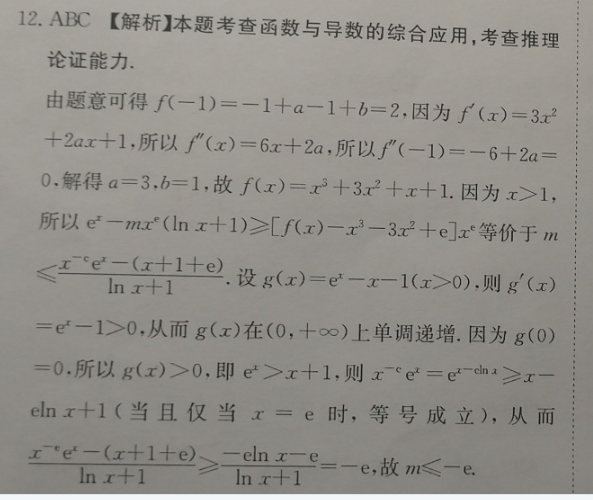 12. ABC 【解析】本题考查函数与导数的综合应用,考查推理
论证能力.
由题意可得 f(-1)=-1+a-1+b=2,因为 f′(x)=3x²
+2ax+1,所以 f″(x)=6x+2a,所以f″(-1)=-6+2a=
0,解得 a=3,b=1,故 f(x)=x³+3x²+x+1. 因为 x>1,
所以 eˣ-mxᵉ(ln x+1)≥[f(x)-x³-3x²+e]xᵉ等价于 m
≤\frac{x^{-e}e^{x}-(x+1+e)}{ln x+1}. 设 g(x)=eˣ-x-1(x>0),则 g′(x)
=eˣ-1>0,从而 g(x)在(0,+∞)上单调递增. 因为 g(0)
=0,所以 g(x)>0,即 eˣ>x+1,则 x^{-e}e^{x}=e^{x-eln x}≥x-
eln x+1(当且仅当 x=e 时,等号成立),从而
\frac{x^{-e}e^{x}-(x+1+e)}{ln x+1}≥\frac{-eln x-e}{ln x+1}=-e,故 m≤-e.